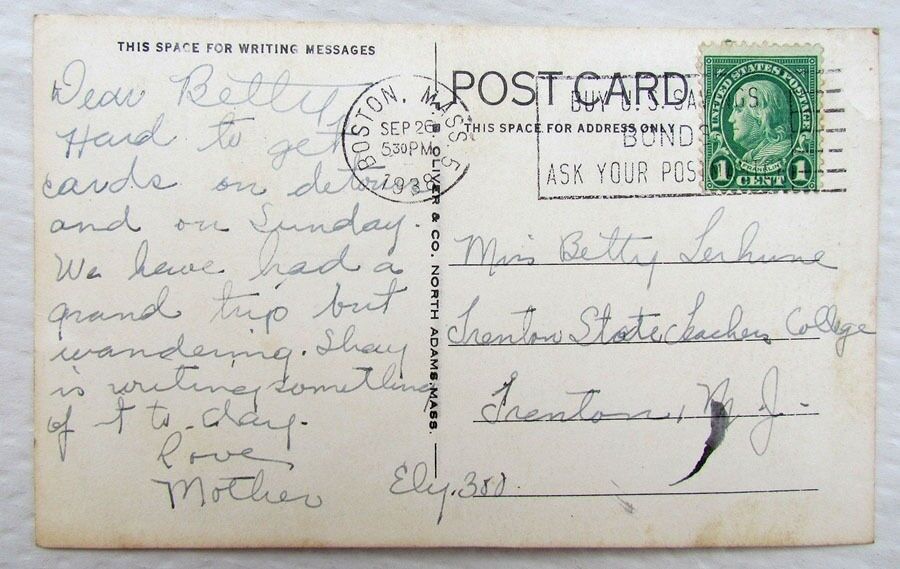 THIS SPACE FOR WRITING MESSAGES
Dear Betty,
Hard to get
cards on detour
and on Sunday.
We have had a
grand trip but
wandering. Shay
is writing something
of it to-day.
Love
Mother
BOSTON, MASS. 5
SEP 26
530PM
1938
OLIVER & CO. NORTH ADAMS, MASS.
POST CARD
THIS SPACE FOR ADDRESS ONLY
BUY U.S. SAVINGS
BONDS
ASK YOUR POS
UNITED STATES POSTAGE
FRANKLIN
1 CENT 1
Miss Betty Terhune
Trenton State Teachers College
Trenton, N. J.
Ely. 300.